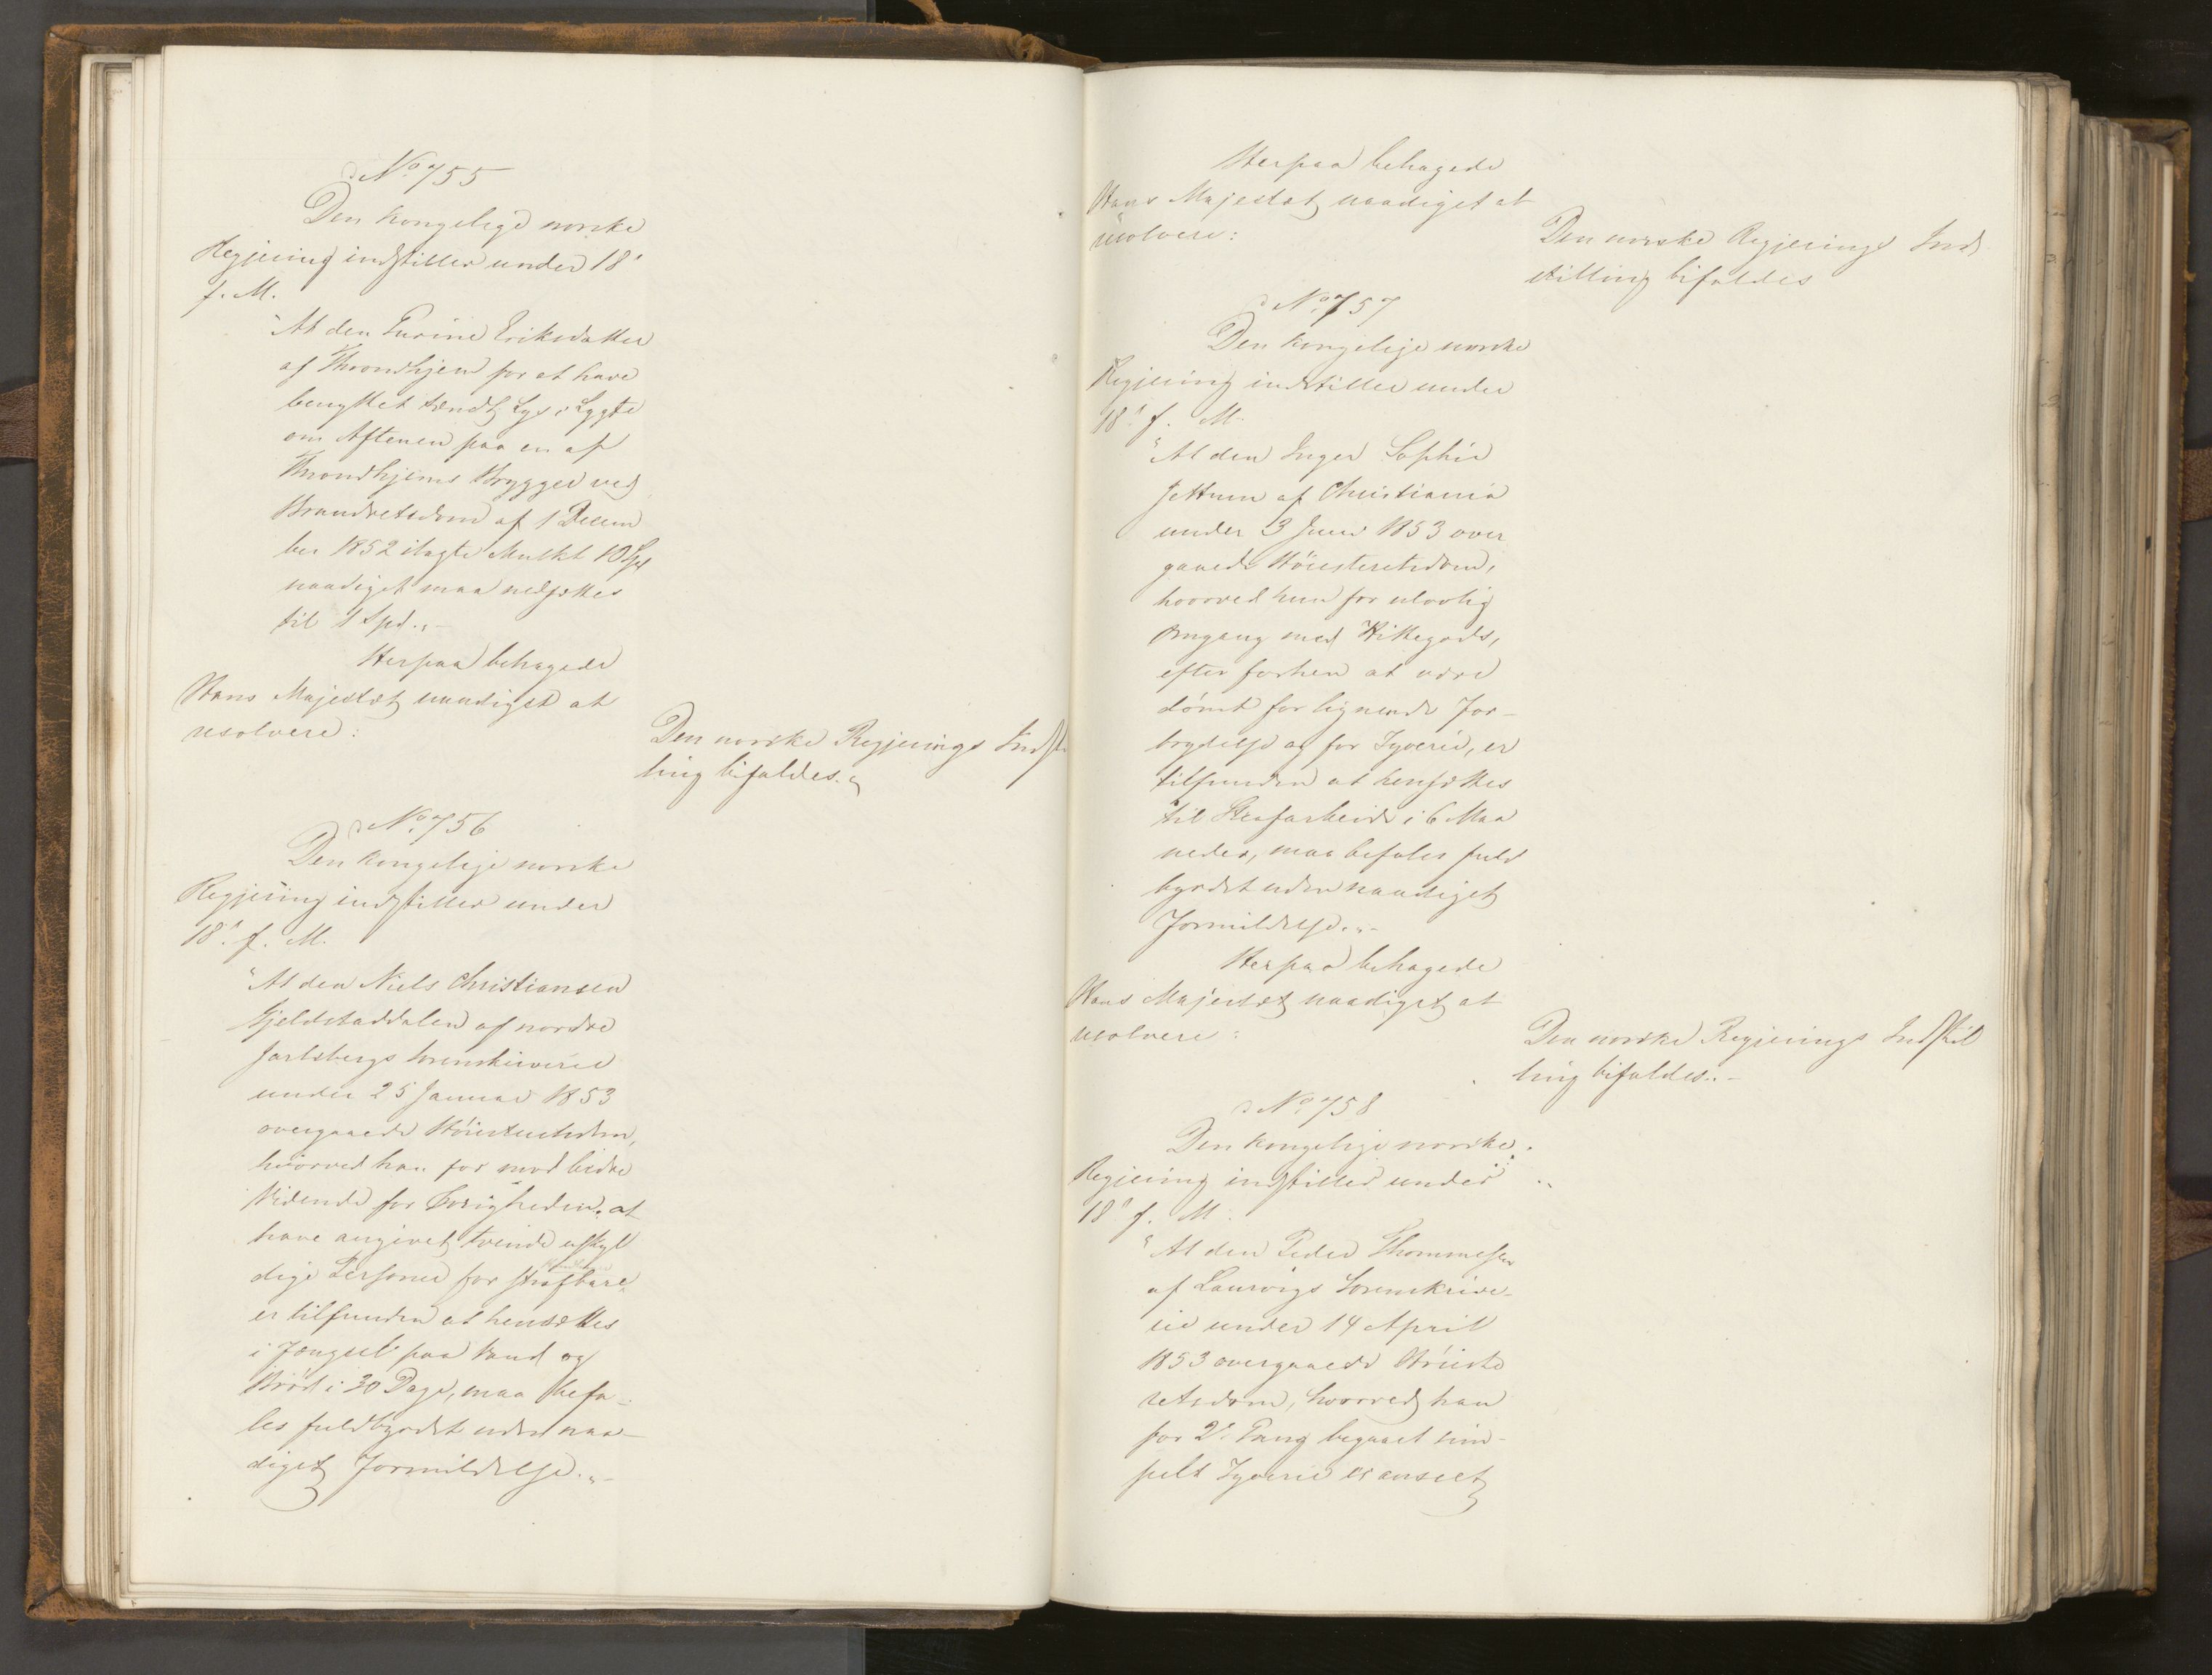 No 755
Den kongelige norske
Regjering indstiller under 18de
f. M.
"At den Gurine Eriksdatter
af Throndhjem for at have
benyttet tændt Lys i Lygte
om Aftenen paa en af
Throndhjems Brygger ved
Brandretsdom af 1 Decem
ber 1852 ilagte Mulkt 10 Spd
naadigst maa nedsættes
til 1 Spd."-
Herpaa behagede
Hans Majestæt naadigst at
resolvere:
Den norske Regjerings Indstil
ling bifaldes.
No 756
Den kongelige norske
Regjering indstiller under
18de f. M.
"At den Niels Christiansen
Gjeldstaddalen af nordre
Jarlsbergs Sorenskriverie
under 25 Januar 1853
overgaaede Høiesteretsdom,
hvorved han for mod bedre
Vidende for Øvrigheden at
have angivet tvende uskyl
dige Personer for strafbare
er tilfunden at hensættes
i Fængsel paa Vand og
Brød i 30 Dage, maa befa-
les fuldbyrdet uden naa-
digst Formildelse."-
Herpaa behagede
Hans Majestæt naadigst at
resolvere:
Den norske Regjerings Ind
stilling bifaldes
No 757
Den kongelige norske
Regjering indstiller under
18de f. M.
"At den Inger Sophie
Jettum af Christiania
under 3 Juni 1853 over
gaaede Høiesteretsdom,
hvorved hun for ulovlig
Omgang med Hittegods,
efter forhen at være
dømt for lignende For-
brydelse og for Tyverie, er
tilfunden at hensættes
til Strafarbeide i 6 Maa
neder, maa befales fuld
byrdet uden naadigst
Formildelse."-
Herpaa behagede
Hans Majestæt naadigst at
resolvere:
Den norske Regjerings Indstil
ling bifaldes.-
No 758
Den kongelige norske
Regjering indstiller under
18de f. M.
"At den Peder Thommesen
af Laurvigs Sorenskrive-
rie under 14 April
1853 overgaaede Høieste
retsdom, hvorved han
for 2de Gang begaaet sim-
pelt Tyverie er anseet